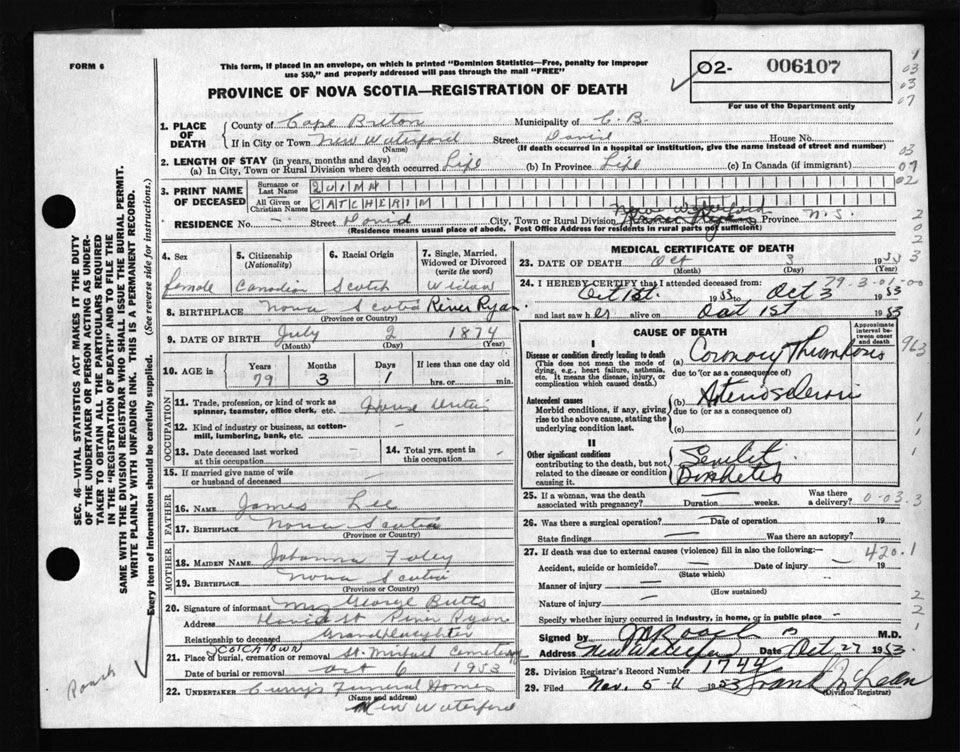 FORM 6
This form, if placed in an envelope, on which is printed "Dominion Statistics—Free, penalty for improper
use $50," and properly addressed will pass through the mail "FREE"
O2- 006107
For use of the Department only
PROVINCE OF NOVA SCOTIA—REGISTRATION OF DEATH
1. PLACE OF DEATH County of Cape Breton Municipality of C.B.
If in City or Town New Waterford Street David House No.
(Name) (If death occurred in a hospital or institution, give the name instead of street and number)
2. LENGTH OF STAY (in years, months and days)
(a) In City, Town or Rural Division where death occurred Life (b) In Province Life (c) In Canada (if immigrant)
3. PRINT NAME OF DECEASED Surname or Last Name
All Given or Christian Names
RESIDENCE No. — Street David City, Town or Rural Division New Waterford Province N.S.
(Residence means usual place of abode. Post Office Address for residents in rural parts not sufficient)
4. Sex 5. Citizenship (Nationality) 6. Racial Origin 7. Single, Married, Widowed or Divorced (write the word)
female Canadian Scotch Widow
8. BIRTHPLACE Nova Scotia River Ryan
(Province or Country)
9. DATE OF BIRTH July 2 1874
(Month) (Day) (Year)
10. AGE in Years Months Days If less than one day
79 3 1 hrs. or min.
OCCUPATION
11. Trade, profession, or kind of work as spinner, teamster, office clerk, etc. House
12. Kind of industry or business, as cotton-mill, lumbering, bank, etc. —
13. Date deceased last worked at this occupation — 14. Total yrs. spent in this occupation -
15. If married give name of wife or husband of deceased
FATHER
16. Name James Lee
17. Birthplace Nova Scotia
(Province or Country)
MOTHER
18. Maiden Name Johanna Foley
19. Birthplace Nova Scotia
(Province or Country)
20. Signature of informant Mrs George Butts
Address David St River Ryan
Relationship to deceased Granddaughter
SCOTCHTOWN
21. Place of burial, cremation or removal St. Michael Cemetery
Date of burial or removal Oct 6 1953
22. UNDERTAKER Curry's Funeral Home
(Name and address)
New Waterford
MEDICAL CERTIFICATE OF DEATH
23. DATE OF DEATH Oct 3 1953
(Month) (Day) (Year)
79-3-01-00
24. I HEREBY CERTIFY that I attended deceased from:
Oct 1st. 1953 to Oct 3 1953
and last saw her alive on Oct 1st 1953
CAUSE OF DEATH
Approximate interval between onset and death
I
Disease or condition directly leading to death
(This does not mean the mode of dying, e.g., heart failure, asthenia, etc. It means the disease, injury, or complication which caused death.)
(a) Coronary Thrombosis
due to (or as a consequence of)
Antecedent causes
Morbid conditions, if any, giving rise to the above cause, stating the underlying condition last.
(b) Arteriosclerosis
due to (or as a consequence of)
(c)
II
Other significant conditions
contributing to the death, but not related to the disease or condition causing it.
Senility
Diabetes
25. If a woman, was the death associated with pregnancy? — Duration weeks. Was there a delivery?
0-03.3
26. Was there a surgical operation? — Date of operation 19
State findings Was there an autopsy?
27. If death was due to external causes (violence) fill in also the following:— 420.1
Accident, suicide or homicide? — Date of injury — 19
(State which)
Manner of injury —
(How sustained)
Nature of injury —
Specify whether injury occurred in industry, in home, or in public place -
Signed by M.D.
Address New Waterford Date Oct. 27 1953.
28. Division Registrar's Record Number 1744
29. Filed Nov. 5-th 1953
(Division Registrar)
SEC. 46—VITAL STATISTICS ACT MAKES IT THE DUTY
OF THE UNDERTAKER OR PERSON ACTING AS UNDER-
TAKER TO OBTAIN ALL THE PARTICULARS REQUIRED
IN THE "REGISTRATION OF DEATH" AND TO FILE THE
SAME WITH THE DIVISION REGISTRAR WHO SHALL ISSUE THE BURIAL PERMIT.
WRITE PLAINLY WITH UNFADING INK. THIS IS A PERMANENT RECORD.
Every item of information should be carefully supplied. (See reverse side for instructions.)
Roach